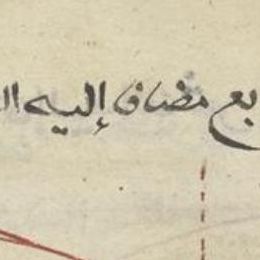 بع مضاف إليه ال